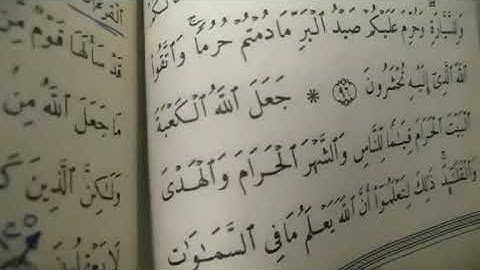 وَلِلسَّيَّارَةِ وَحُرِّمَ عَلَيْكُمْ صَيْدُ ٱلْبَرِّ مَا دُمْتُمْ حُرُمًا وَٱتَّقُوا۟
ٱللَّهَ ٱلَّذِىٓ إِلَيْهِ تُحْشَرُونَ ٩٦ * جَعَلَ ٱللَّهُ ٱلْكَعْبَةَ
ٱلْبَيْتَ ٱلْحَرَامَ قِيَٰمًا لِّلنَّاسِ وَٱلشَّهْرَ ٱلْحَرَامَ وَٱلْهَدْىَ
وَٱلْقَلَٰٓئِدَ ذَٰلِكَ لِتَعْلَمُوٓا۟ أَنَّ ٱللَّهَ يَعْلَمُ مَا فِى ٱلسَّمَٰوَٰتِ
قَدْ سَأَلَهَا قَوْمٌ مِّن
مَا جَعَلَ ٱللَّهُ مِنۢ
وَلَٰكِنَّ ٱلَّذِينَ
لَا يَعْقِلُونَ